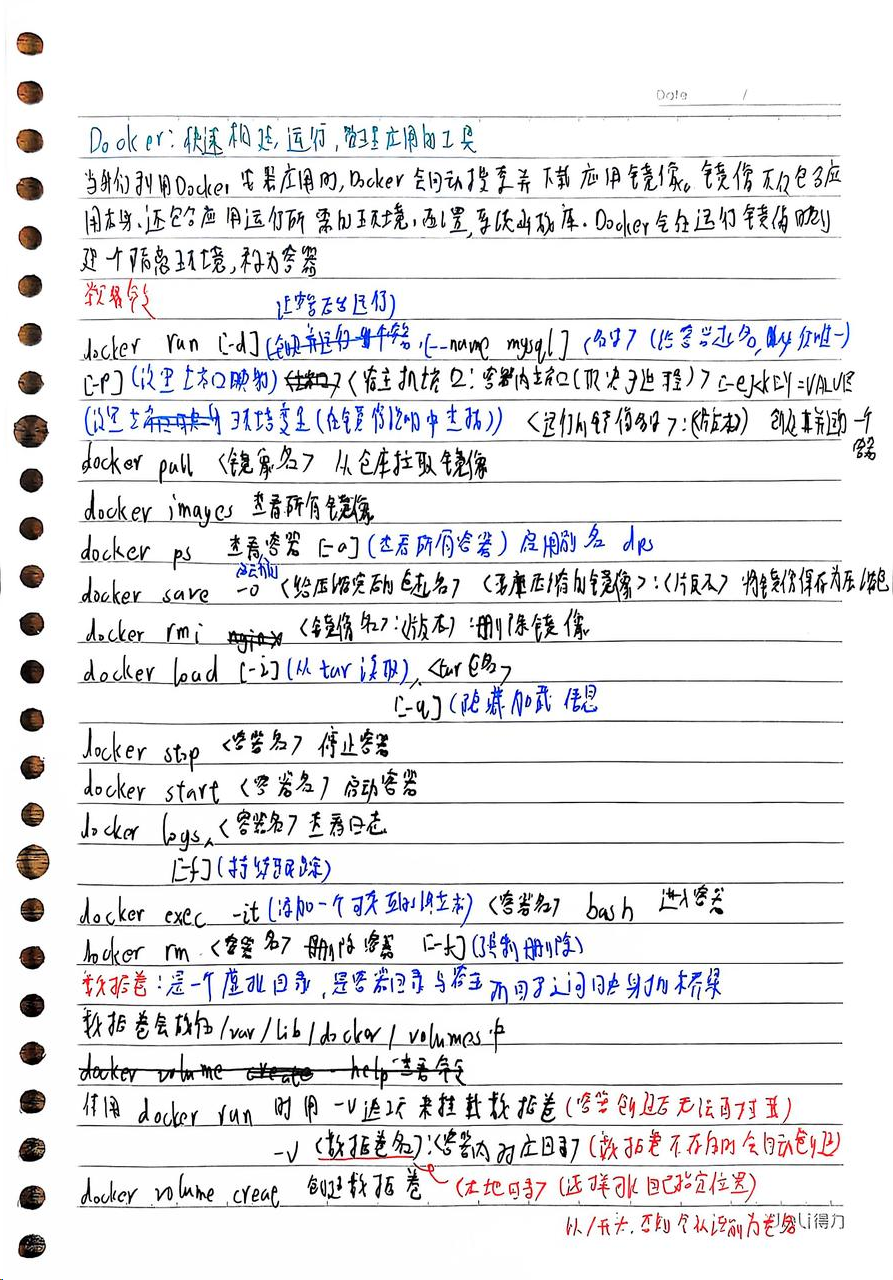 Date /
Docker：快速构建，运行，管理应用的工具
当我们利用Docker安装应用时，Docker会自动搜索并下载应用镜像。镜像不仅包含应
用本身，还包含应用运行所需的环境，配置，系统函数库。Docker会在运行镜像时创
建一个隔离环境，称为容器
让容器后台运行）
docker run [-d] [--name mysql] <名字>（给容器起名，必须唯一）
[-p]（设置端口映射）<宿主机端口：容器内端口（取决于进程）> [-e]<KEY=VALUE
环境变量（在镜像说明中查找））<运行的镜像名字>：<版本> 创建并运行一个
容器
docker pull <镜像名> 从仓库拉取镜像
docker images 查看所有镜像
docker ps 查看容器 [-a]（查看所有容器）应用别名 dps
docker save -o <给压缩完的包起名> <要压缩的镜像>：<版本> 将镜像保存为压缩包
docker rmi nginx <镜像名>：<版本> 删除镜像
docker load [-i]（从tar读取），<tar包名>
[-q]（隐藏加载信息
docker stop <容器名> 停止容器
docker start <容器名> 启动容器
docker logs <容器名> 查看日志
[-f]（持续跟踪）
docker exec -it（添加一个可交互的终端）<容器名> bash 进入容器
docker rm <容器名> 删除容器 [-f]（强制删除）
数据卷：是一个虚拟目录，是容器目录与宿主机目录之间映射的桥梁
数据卷会放在/var/lib/docker/volumes中
docker volume create -help 查看命令
使用 docker run 时用 -v 选项来挂载数据卷（容器创建后无法再挂载）
-v <数据卷名>：<容器内对应目录>（数据卷不存在时会自动创建）
docker volume creae 创建数据卷 <本地目录>（这样可以自己指定位置）
以/开头，否则会认识别为卷名
得力